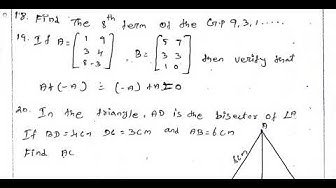 18. Find The 8th term of the G.P 9, 3, 1 .....
19. If A = [1 9
3 4
8 -3] B = [5 7
3 3
1 0] then verify that
A + (-A) = (-A) + A = 0
20. In the triangle, AD is the bisector of ∠A
If BD = 4cm DC = 3cm and AB = 6cm
Find AC
A
6cm